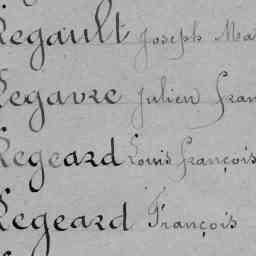 Regault Joseph Ma
Regavre Julien Fran
Regeard Louis François
Regeard François